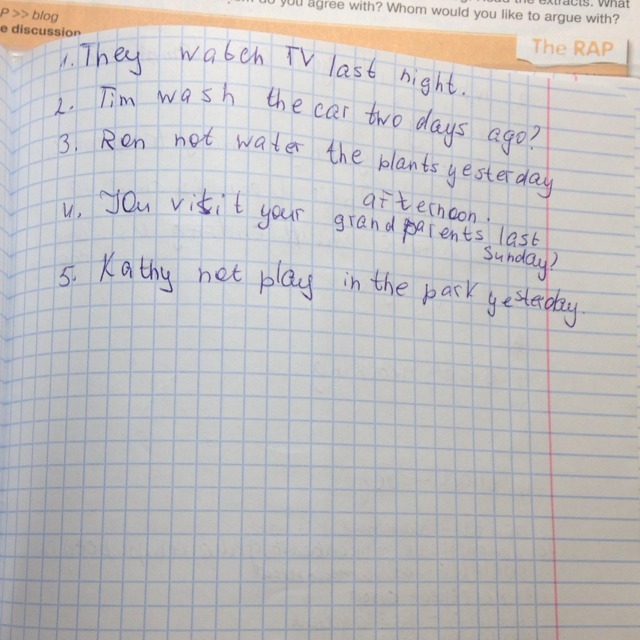 do you agree with? Whom would you like to argue with?
P >> blog
e discussion
The RAP
1. They watch TV last night.
2. Tim wash the car two days ago?
3. Ron not water the plants yesterday
afternoon.
4. You visit your grand parents last
Sunday?
5. Kathy not play in the park yesterday.